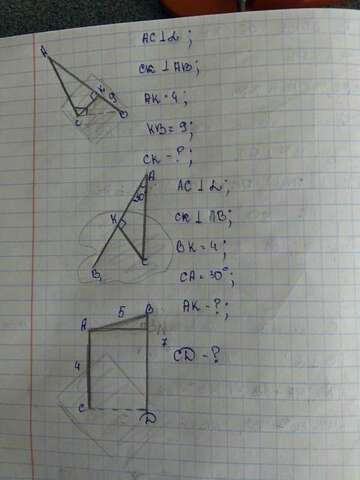 A
AC ⊥ α;
CK ⊥ AB;
K
9
AK = 4;
C
KB = 9;
CK - ?;
A
30
AC ⊥ α;
K
CK ⊥ AB;
BK = 4;
C
B
CA = 30°;
AK - ?;
5
B
A
7
4
CD - ?
C
D